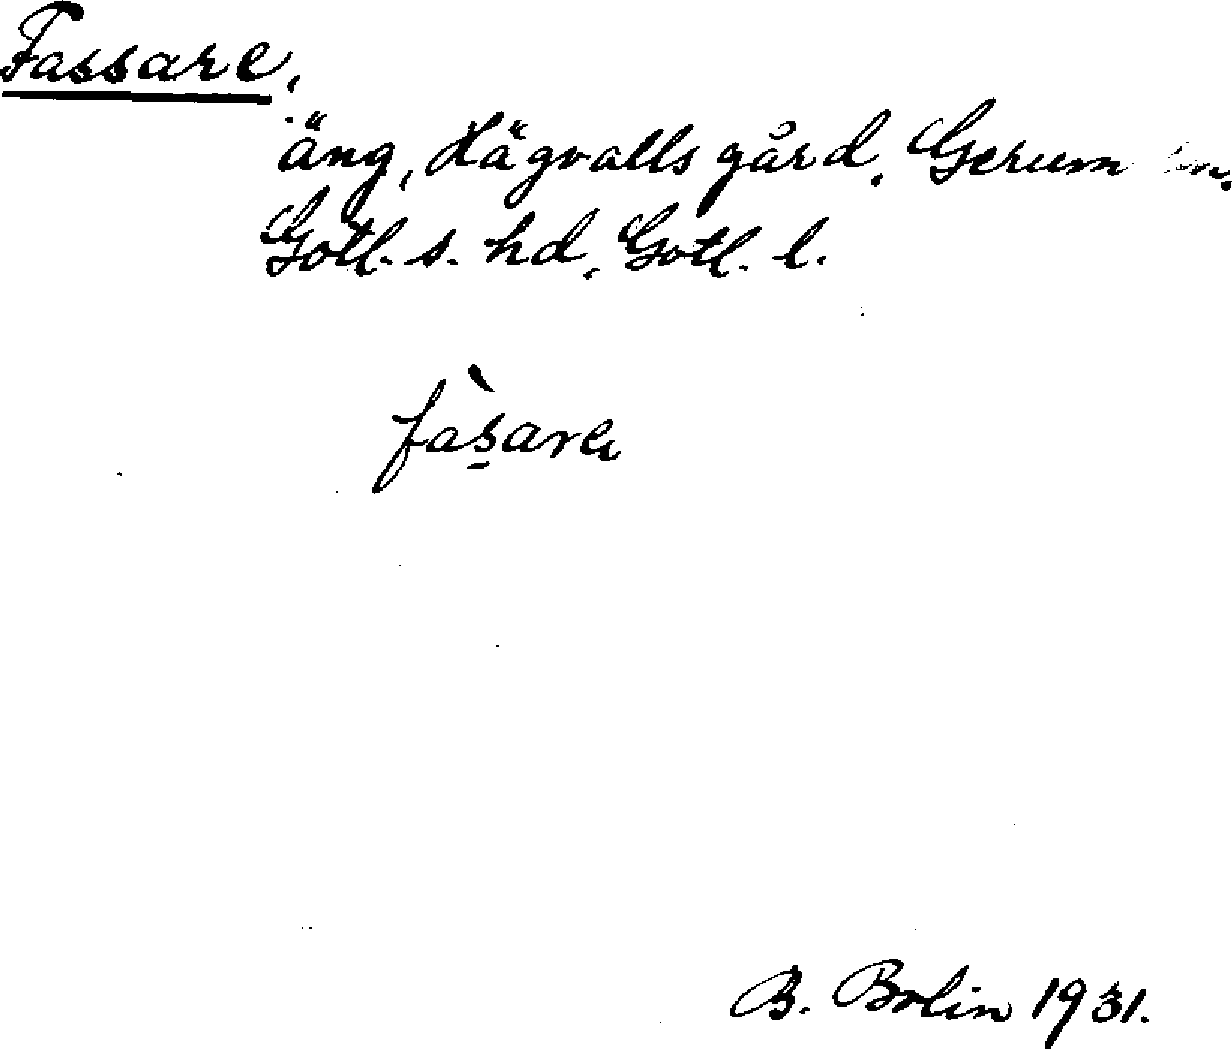 Fassare,
äng, Hägvalls gård, Gerum
Gotl. s. hd, Gotl. l.
fàs̱are
B. Bolin 1931.